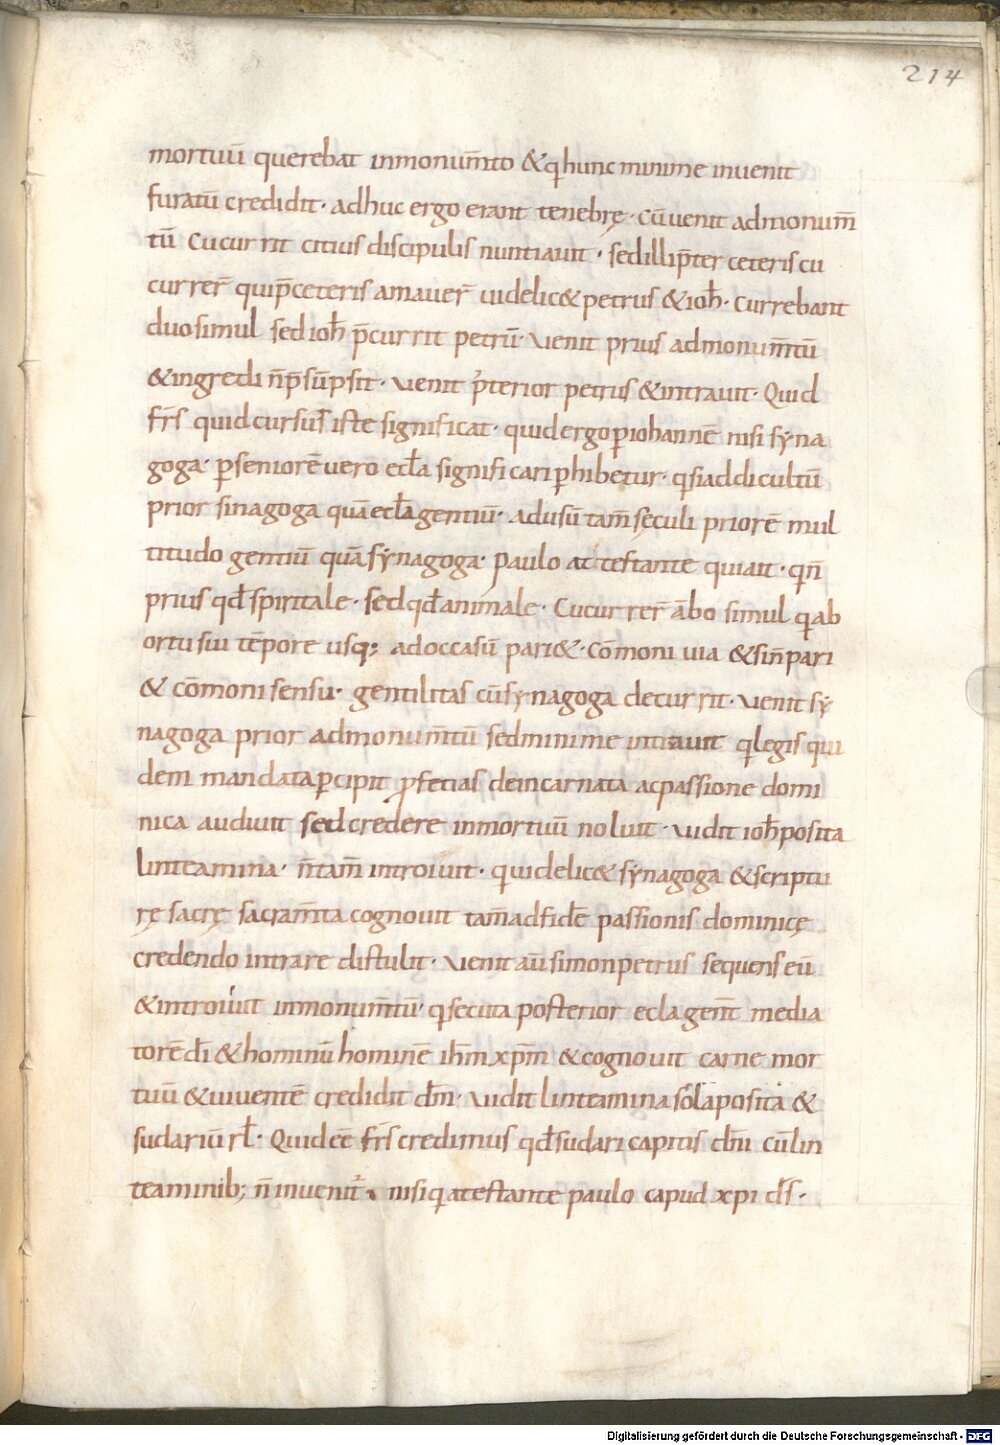 214
mortuū querebat inmonum̄to &q̄hunc minime inuenit
furatū credidit· adhuc ergo erant tenebrę· Cūuenit admonum̄
tū Cucurrit citius discipulis nuntiauit· sedillip̄ter ceteris cu
currer̄ quip̄ceteris amauer̄ uidelic& petrus &ioh̄· Currebant
duo simul sed ioh̄ p̄currit petrū· Uenit prius admonum̄tū
&ingredi n̄p̄sūpsit· Uenit p̓terior petrus &intrauit· Quid
fr̄s quid cursus iste significat· quid ergo ꝑiohannē nisi syna
goga· ꝑseniorē uero eccƚa significari ꝑhibetur· qsiad di cultū
prior sinagoga quā eccƚa gentiū· adusū tam̄ seculi priorē mul
titudo gentiū quā synagoga· Paulo at testante qui ait· qn̄
prius qđ spiritale· sed qđ animale· Cucurrer̄ ābo simul q̄ ab
ortu sui tēpore usq; ad occasū pari &· Cōmoni uia &sin̄ pari
& cōmoni sensu· gentilitas cū synagoga decurrit· Uenit sy
nagoga prior admonum̄tū sed minime intrauit q̄ legis qui
dem mandata ꝑcipit ꝓfetias deincarnata ac passione domi
nica audiuit sed credere inmortuū noluit· Uidit ioh̄ posita
linteamina· n̄ tam̄ introiuit· q̄uidelic& synagoga &scriptu
rę sacrę sacram̄ta cognouit tam̄ adfidē passionis dominicę
credendo intrare distulit· Uenit aū simon petrus sequens eū
&introiuit inmonum̄tū· q̄ secuta posterior eccla gent̄ media
torē dī &hominū hominē ih̄m xp̄m &cognouit carne mor
tuū &uiuentē credidit dm̄· Uidit lintamina sola posita &
sudariū rƚ· Quid eē fr̄s credimus qđ sudari capitis dn̄i cū lin
teaminib; n̄ inuenit̄· nisi q̄ atestante paulo capud xpi ds̄·
Digitalisierung gefördert durch die Deutsche Forschungsgemeinschaft - DFG